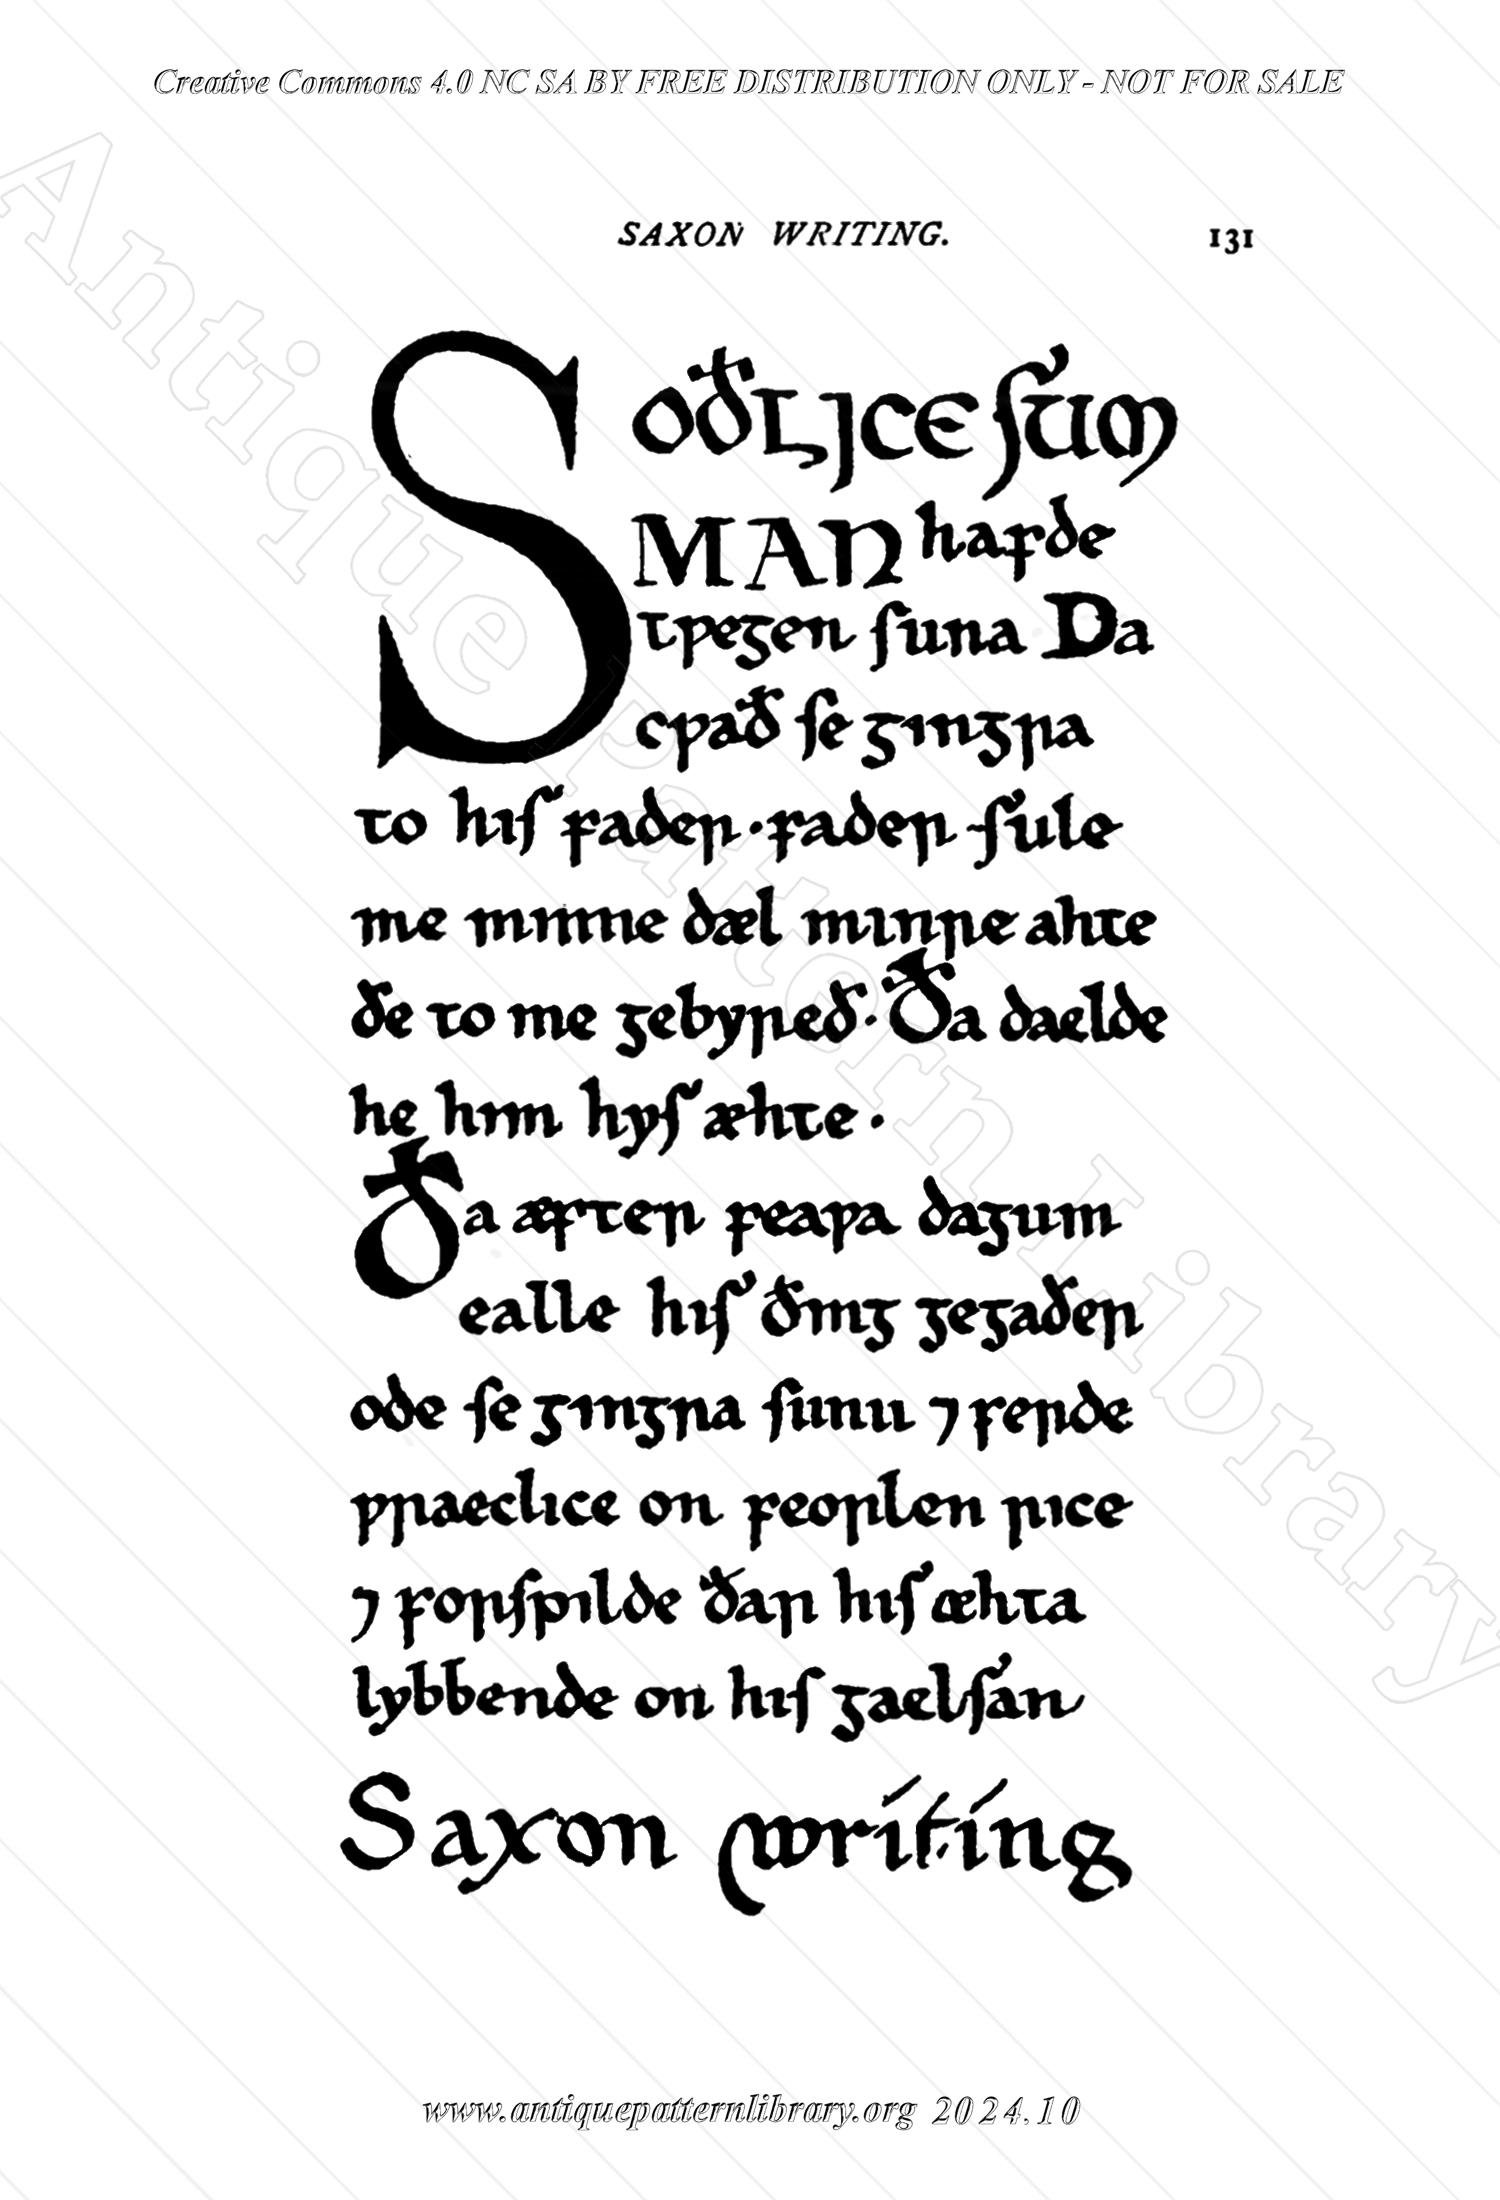 Creative Commons 4.0 NC SA BY FREE DISTRIBUTION ONLY - NOT FOR SALE
SAXON WRITING. 131
Soðlice sum
MAN hafde
tƿegen suna Da
cƿað se gingra
to his fader · fader · sule
me minne dæl minre ahte
ðe to me gebyreð · Ða daelde
he him hys æhte ·
Ða æfter feaƿa dagum
ealle his ðing gegader
ode se gingra sunu ⁊ ferde
ƿraeclice on feorlen rice
⁊ forspilde ðar his æhta
lybbende on his gaelsan
Saxon writing
Antique Pattern Library
www.antiquepatternlibrary.org 2024.10